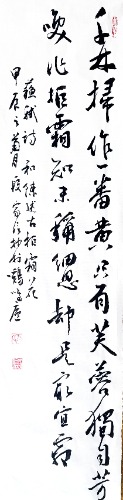 千林掃作一番黄只有芙蓉獨自芳
喚作拒霜知未稱細思却是最宜霜
蘇軾詩和陳述古拒霜花
甲辰之